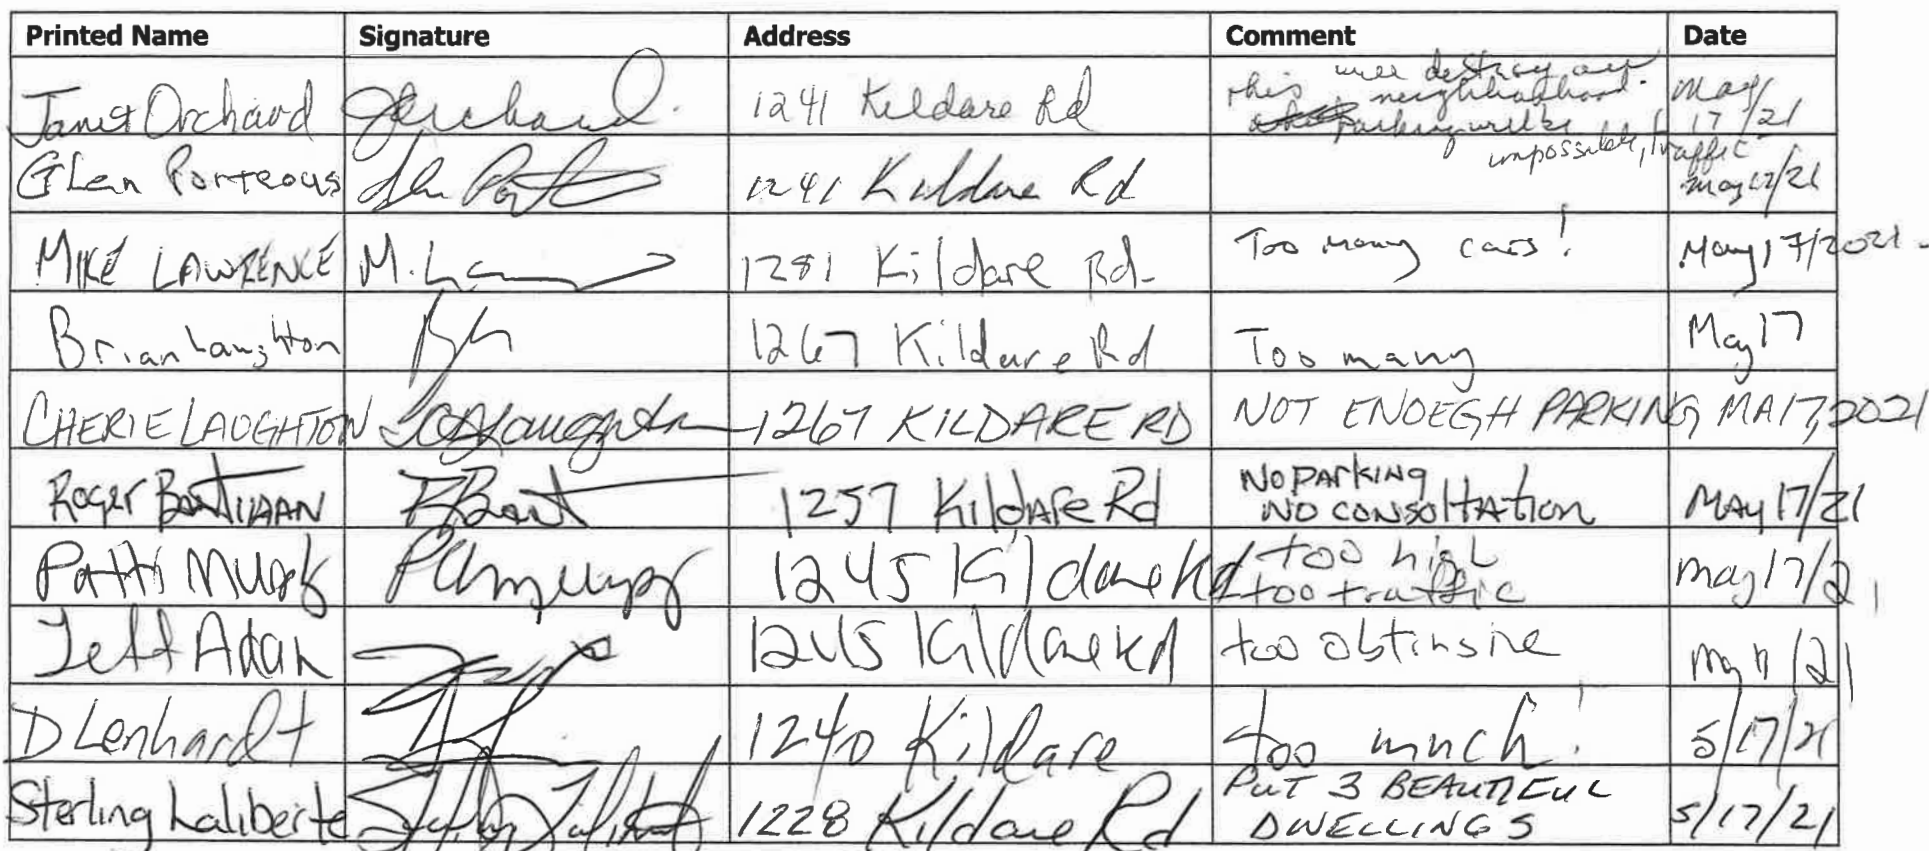 Printed Name Signature Address Comment Date
Janet Orchard JOrchard. 1241 Kildare Rd This will destroy our neighbourhood. parking will be impossible, traffic May 17/21
Glen Porteous 1241 Kildare Rd May 17/21
MIKE LAWRENCE M. La 1281 Kildare Rd. Too many cars! May 17/2021
Brian Laughton 1267 Kildare Rd Too many May 17
CHERIE LAUGHTON Laughton 1267 KILDARE RD NOT ENOEGH PARKING MA17,2021
Roger BASTIAAN RBast 1257 KildAre Rd NO PARKING
NO CONSOLTATION MAY 17/21
Patti 1245 Kildare Rd too high
too traffic May 17/21
Jeff Adan 1245 Kildare Rd too obtinsive May 17/21
D Lenhardt 1240 Kildare too much! 5/17/21
Sterling Laliberte 1228 Kildare Rd PUT 3 BEAUTIFUL
DWELLINGS 5/17/21